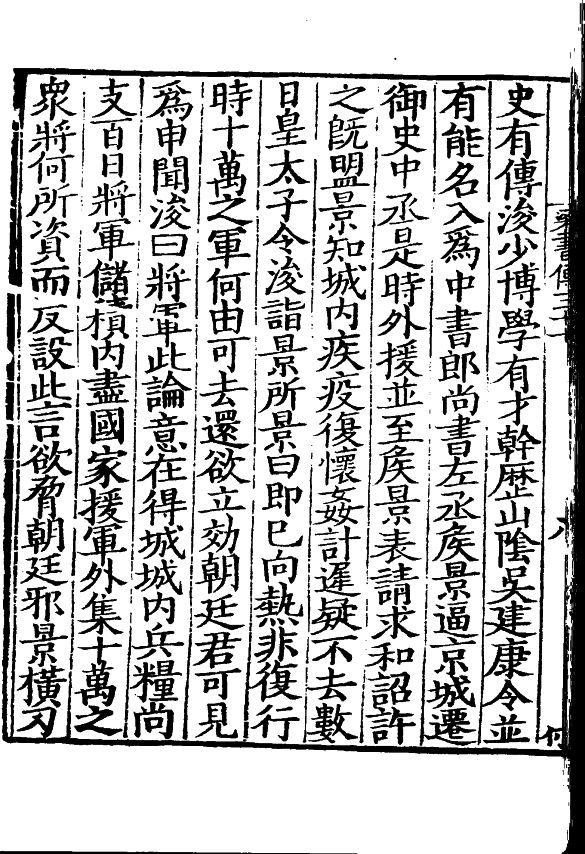 史有傳浚少博學有才幹歷山陰吳建康令並
有能名入爲中書郎尚書左丞侯景逼京城遷
御史中丞是時外援並至侯景表請求和詔許
之既盟景知城內疾疫復懷姦計遲疑不去數
日皇太子令浚詣景所景曰即已向熱非復行
時十萬之軍何由可去還欲立効朝廷君可見
爲申聞浚曰將軍此論意在得城城內兵糧尚
支百日將軍儲積內盡國家援軍外集十萬之
衆將何所資而反設此言欲脅朝廷邪景橫刃
八
何